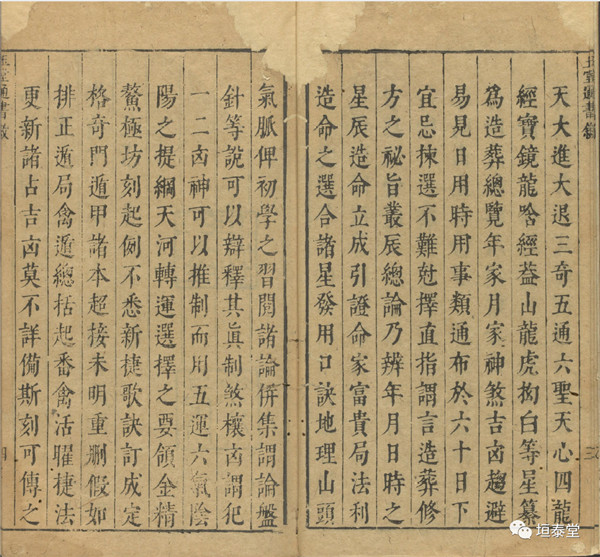 天大進大退三奇五通六聖天心四龍
經寶鏡龍啥經益山龍虎拘白等星纂
為造葬總覽年家月家神煞吉凶趨避
易見日用時用事類通布於六十日下
宜忌揀選不難尅擇直指謂言造葬修
方之秘旨叢辰總論乃辨年月日時之
星辰造命立成引證命家富貴局法利
造命之選合諸星發用口訣地理山頭
氣脈俾初學之習閱諸論併集謂論盤
針等說可以辯釋其真制煞禳凶謂犯
一二凶神可以推制而用五運六氣陰
陽之提綱天河轉運選擇之要領金精
鰲極坊刻起例不悉新捷歌訣訂成定
格奇門遁甲諸本超接未明重刪假如
排正遁局禽遁總括起番禽活曜捷法
更新諸占吉凶莫不詳備斯刻可傳之
通書
垣泰堂